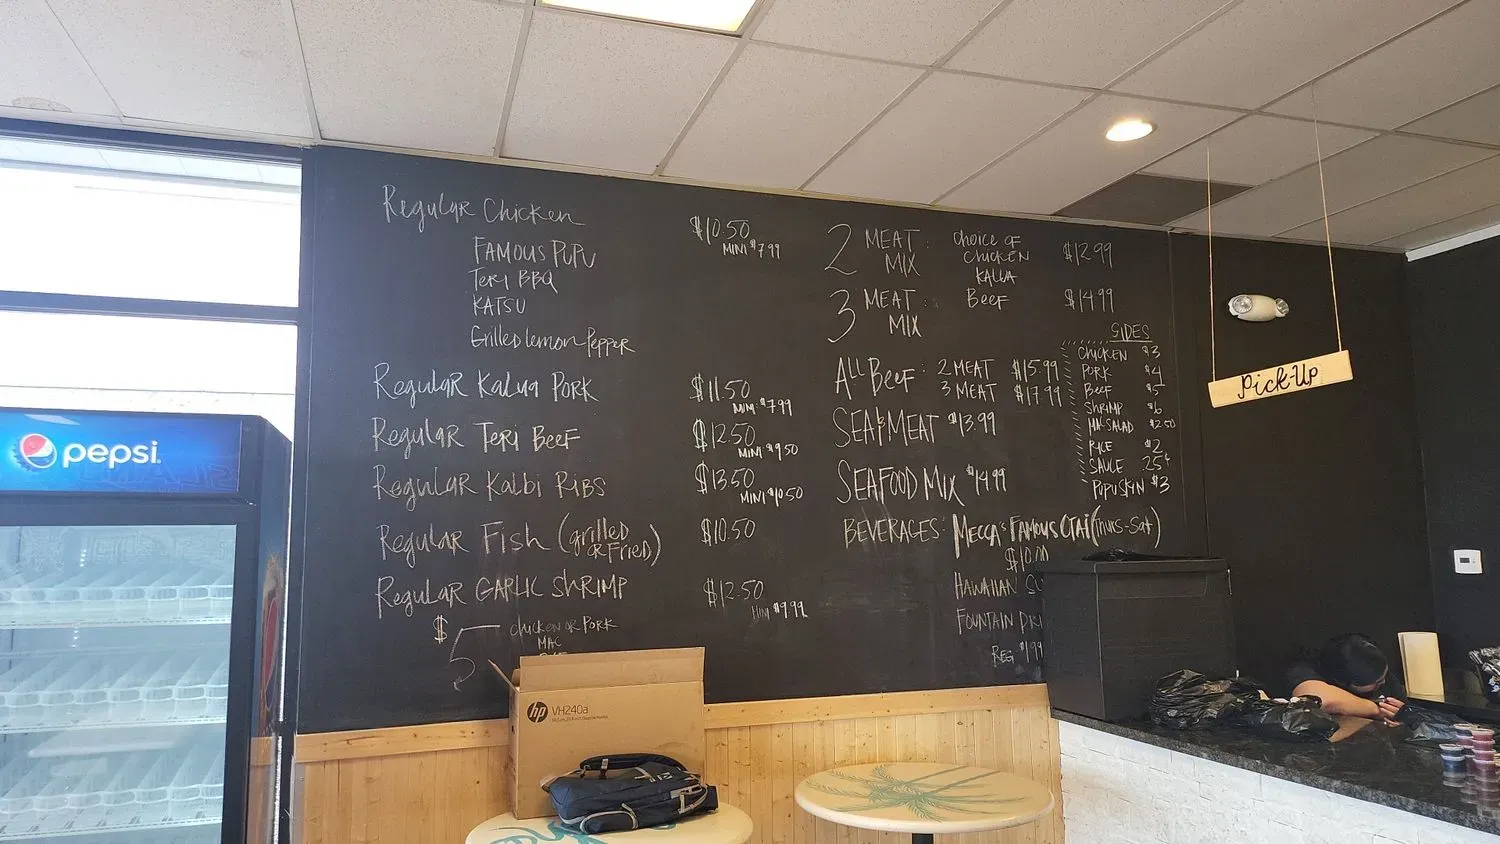 Regular Chicken
$10.50
MINI $7.99
FAMOUS PUPU
Teri BBQ
KATSU
Grilled Lemon Pepper
Regular Kalua Pork
$11.50
MINI $7.99
Regular Teri Beef
$12.50
MINI $9.50
Regular Kalbi Ribs
$13.50
MINI $10.50
Regular Fish (grilled
or Fried)
$10.50
Regular GARLIC SHRIMP
$12.50
MINI $9.99
$5
chicken or Pork
MAC
2 MEAT MIX:
choice of
chicken
KALUA
Beef
$12.99
3 MEAT MIX:
$14.99
ALL BEEF:
2 MEAT $15.99
3 MEAT $17.99
SEA & MEAT $13.99
SEAFOOD MIX $14.99
BEVERAGES: MECCA'S FAMOUS OTAI (Thurs-Sat)
$10.00
HAWAIIAN
FOUNTAIN
REG $1.99
SIDES
CHICKEN $3
PORK $4
BEEF $5
SHRIMP $6
MAC SALAD $2.50
RICE $2
SAUCE 25¢
PUPU SKIN $3
Pick-Up
pepsi
hp VH240a